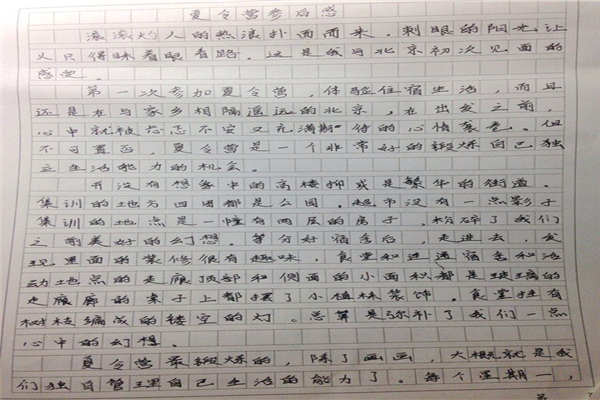 夏令营参后感
滚滚灼人的热浪扑面而来，刺眼的阳光让
人只得眯着眼看路。这是我与北京初次见面的
感觉。
第一次参加夏令营，体验住宿生活，而且
还是在与家乡相隔遥远的北京，在出发之前，
心中就被忐忑不安又充满期待的心情裹卷。但
不可置否，夏令营是一个非常好的锻炼自己独
立生活能力的机会。
并没有想象中的高楼抑或是繁华的街道。
集训的地方四周都是公园。超市没有一点影子
集训的地点是一幢有两层的房子。粉碎了我们
之前美好的幻想。等分好宿舍后，走进去，发
现里面的装修很有趣味，食堂和连通宿舍和活
动地点的走廊顶部和侧面的小面积都是玻璃的
走廊的桌子上都摆了小植株装饰。食堂挂有
树枝编成的镂空的灯。总算是弥补了我们一点
心中的幻想。
夏令营最锻炼的，除了画画，大概就是我
们独自管理自己生活的能力了。每个星期一，
第 7